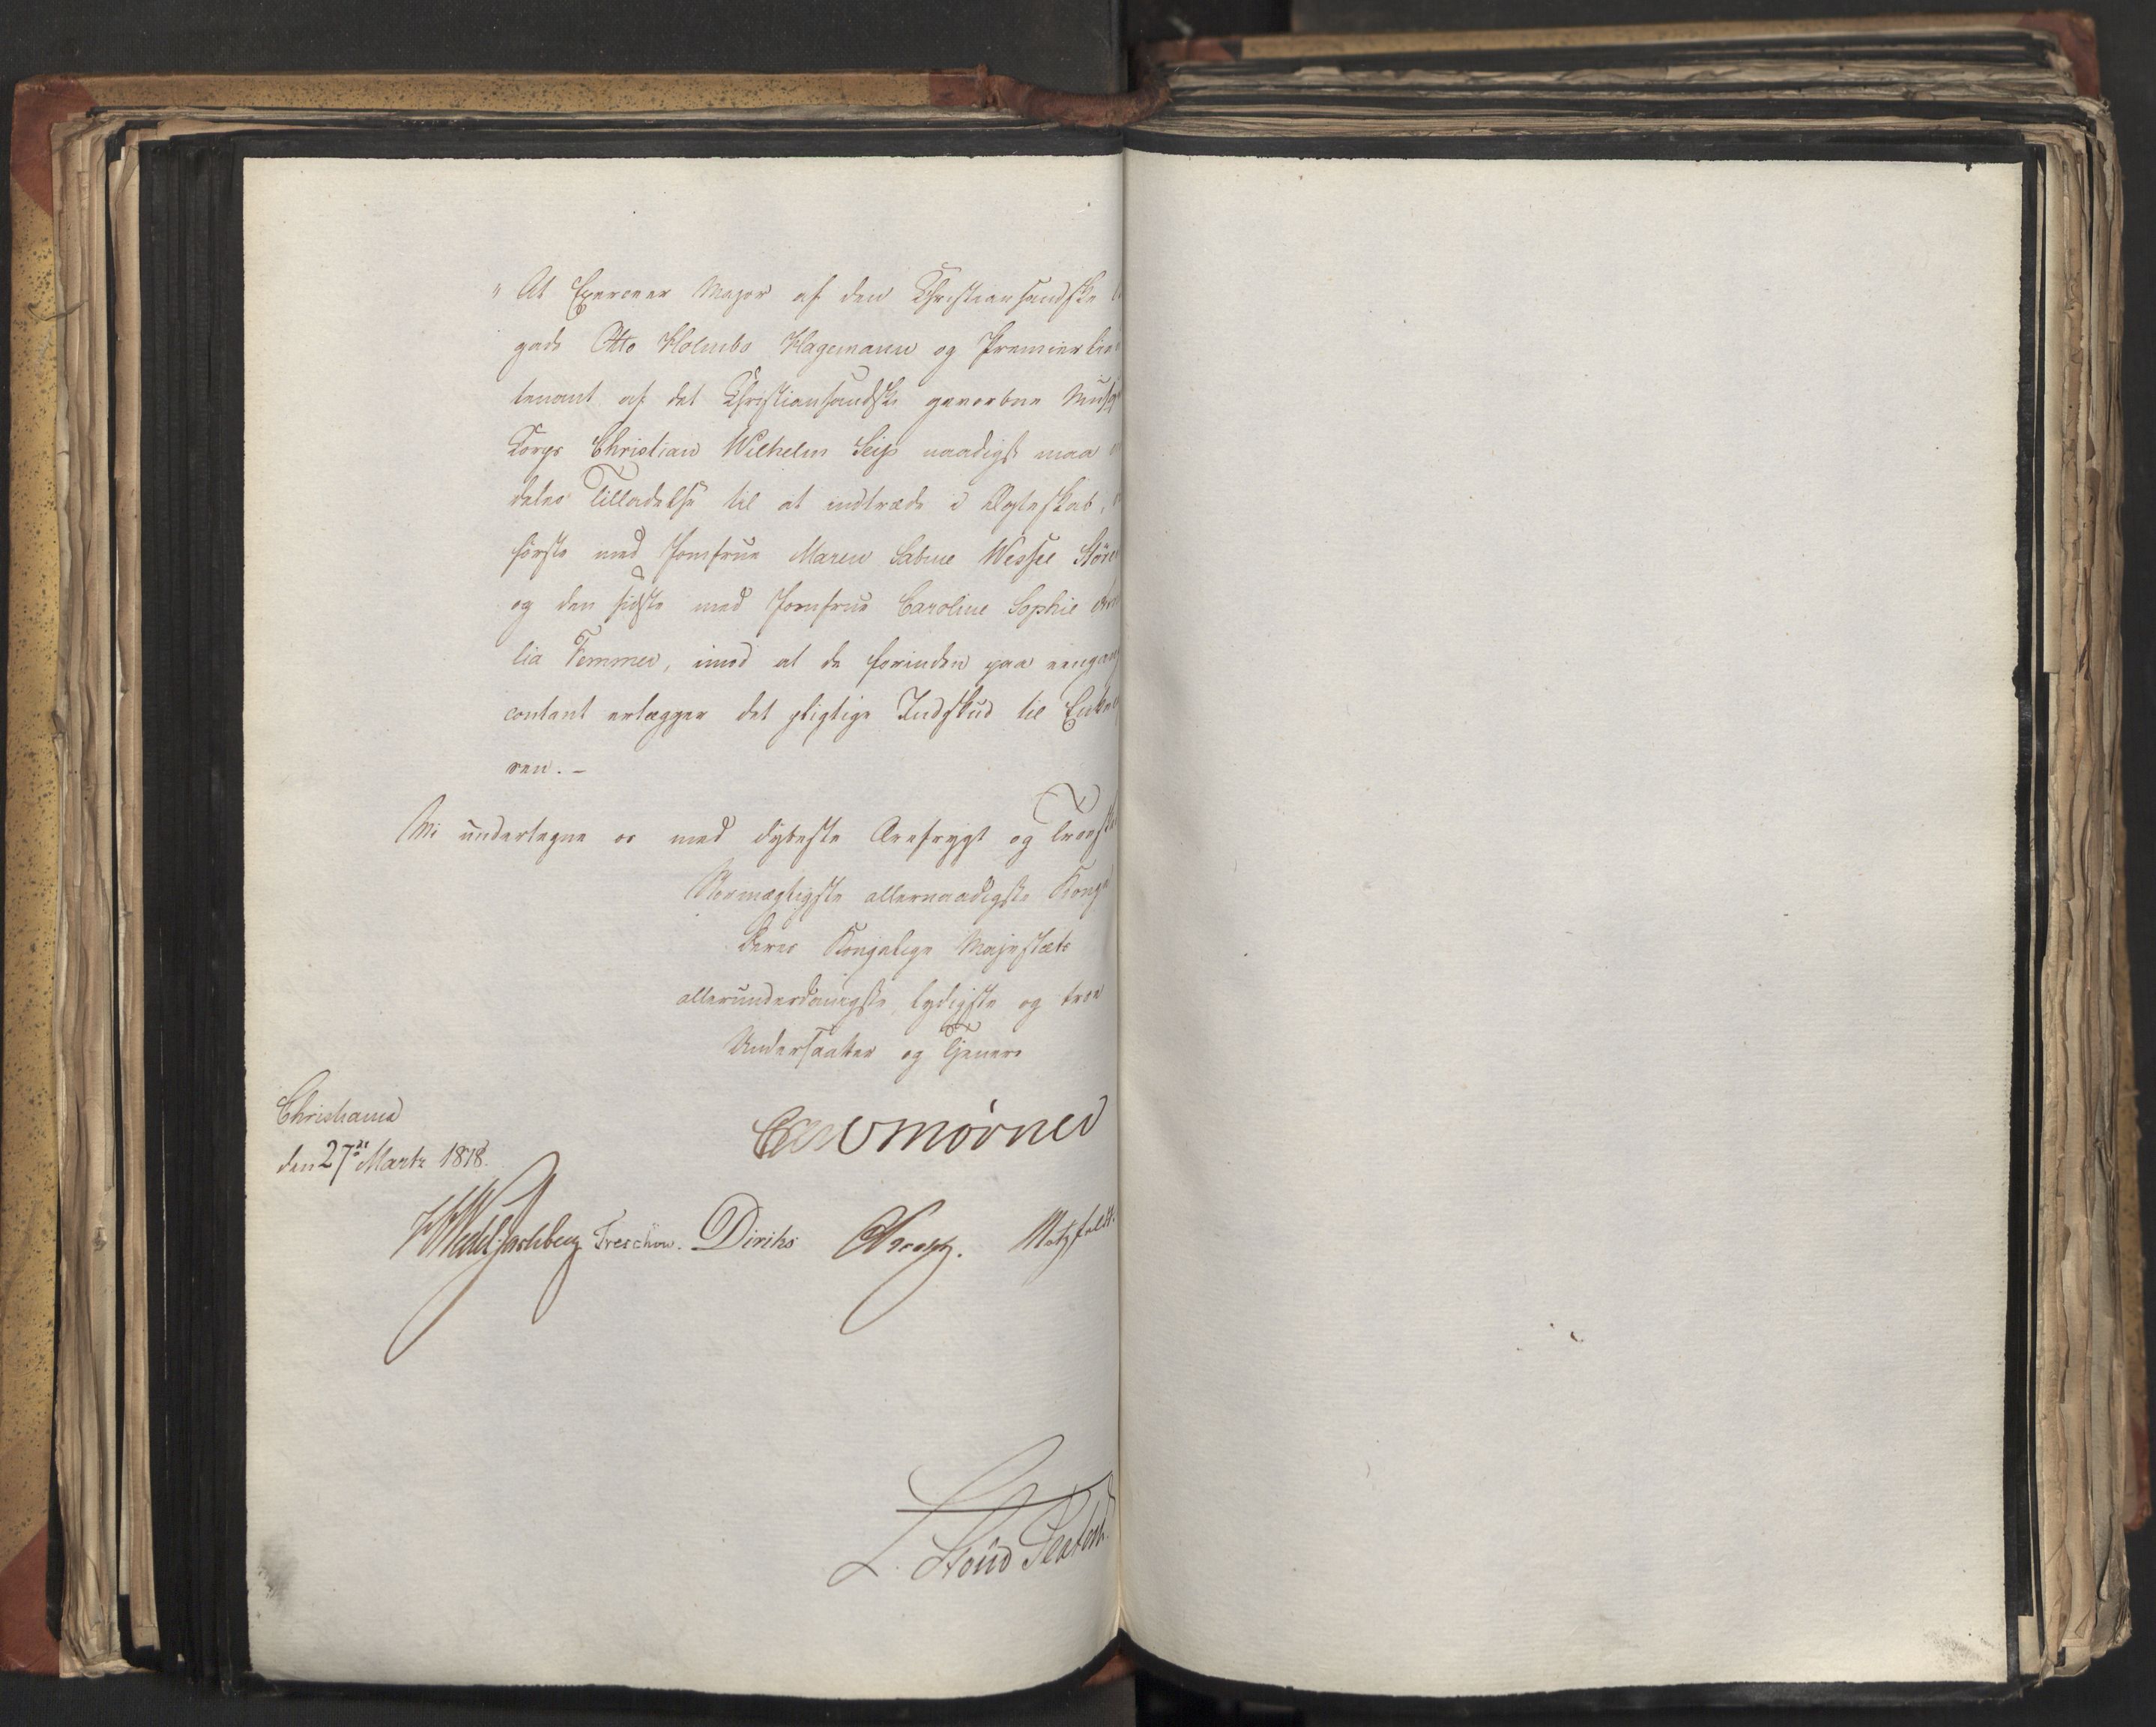 " At Exerceer Major af den Christiansandske
gade Otto Holmboe Hagemann og Premierlieu
tenant af det Christiansandske gevorbne Musq
Corps Christian Wilhelm Seip naadigst maa
deles Tilladelse til at indtræde i Ægteskab,
første med Jomfrue Maren Sabine Wessel Støre
og den sidste med Jomfrue Caroline Sophie
lia Temmer, imod at de forinden paa eengang
contant erlægger det pligtige Indskud til Enke
sen. -
Vi undertegne os med dybeste Ærefrygt og Troeskab
Stormægtigste allernaadigste Konge
Deres Kongelige Majestæts
allerunderdanigste, lydigste og troe
Undersaatter og Tjenere
Christiania
den 27de Marts 1818.
Mörner
Wedel Jarlsberg Treschow. Diriks Krogh. Motzfeldt.
L. Stoud Platou